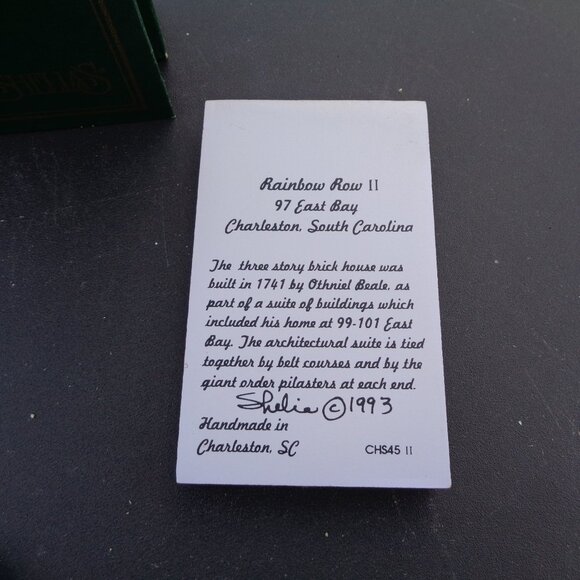 SHELIA'S
Rainbow Row II
97 East Bay
Charleston, South Carolina
The three story brick house was
built in 1741 by Othniel Beale, as
part of a suite of buildings which
included his home at 99-101 East
Bay. The architectural suite is tied
together by belt courses and by the
giant order pilasters at each end.
Shelia ©1993
Handmade in
Charleston, SC
CHS45 II